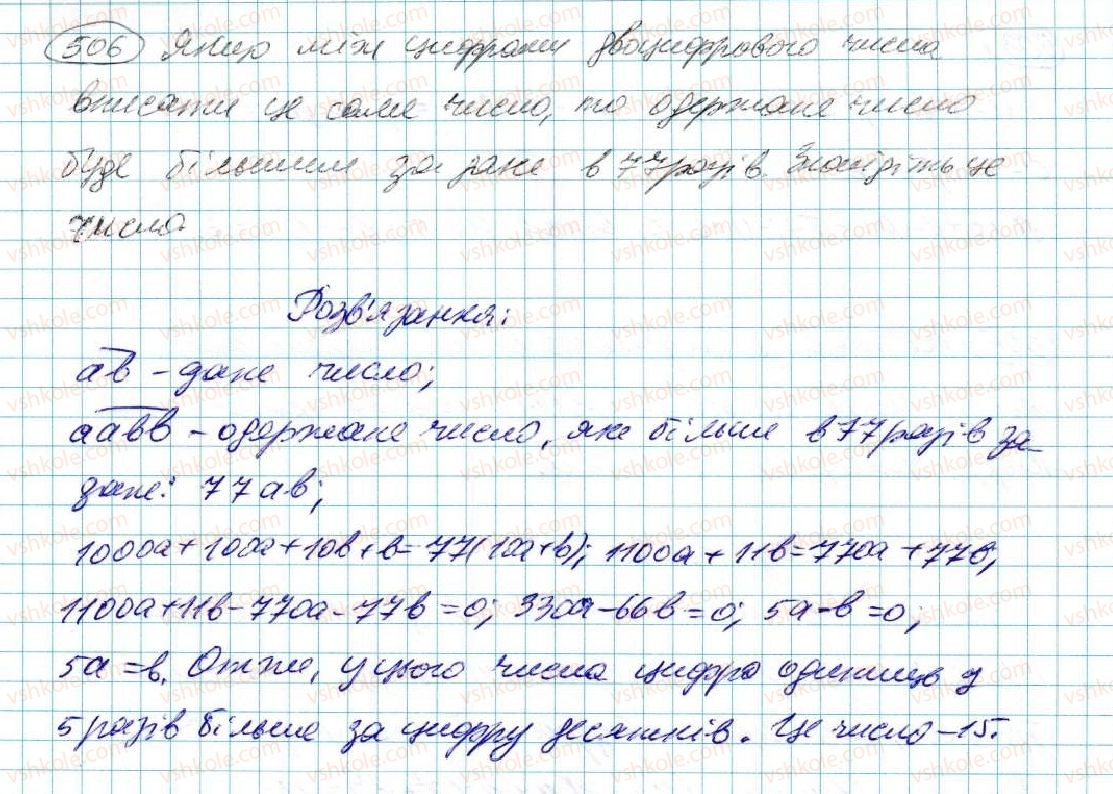 506 Якщо між цифрами двоцифрового числа
вписати це саме число, то одержане число
буде більшим за дане в 77 разів. Знайдіть це
число.
Розв'язання:
ав – дане число;
аавв – одержане число, яке більше в 77 разів за
дане: 77ав;
1000а+100а+10в+в=77(10а+в); 1100а+11в=770а+77в;
1100а+11в-770а-77в=0; 330а-66в=0; 5а-в=0;
5а=в. Отже, у цього числа цифра одиниць у
5 разів більше за цифру десятків. Це число – 15.